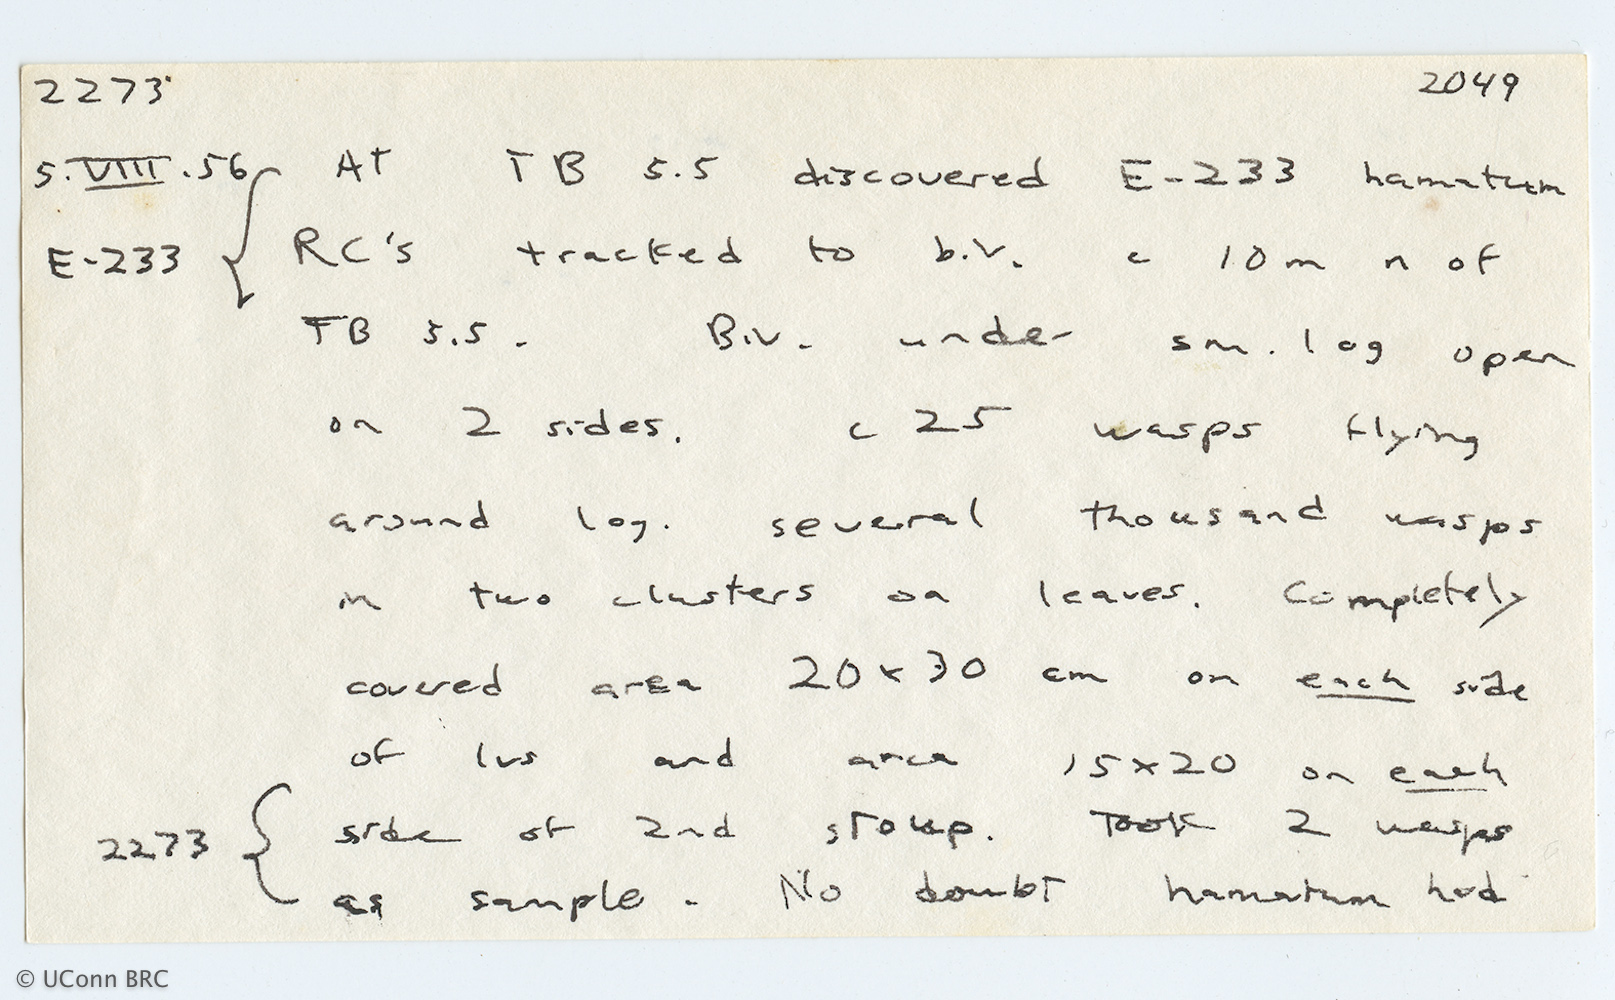 2273 2049
5.VIII.56 At TB 5.5 discovered E-233 hamatum
E-233 RC's tracked to b.v. c 10m n of
TB 5.5. B.v. under sm. log open
on 2 sides. c 25 wasps flying
around log. several thousand wasps
in two clusters on leaves. Completely
covered area 20x30 cm on each side
of lvs and area 15x20 on each
2273 side of 2nd group. Took 2 wasps
as sample. No doubt hamatum had
© UConn BRC